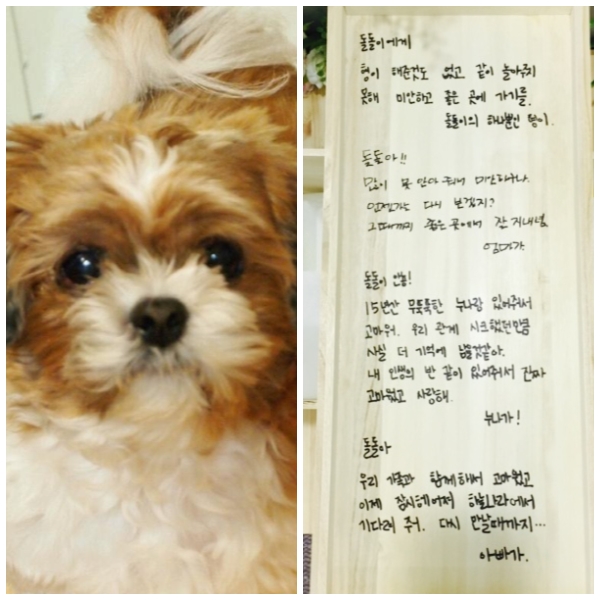 돌돌이에게
형이 해준것도 없고 같이 놀아주지
못해 미안하고 좋은 곳에 가기를.
돌돌이의 하나뿐인 형이.
돌돌아!!
많이 못 안아 줘서 미안하구나.
언젠가는 다시 보겠지?
그때까지 좋은곳에서 잘 지내렴
엄마가.
돌돌이 안농!
15년간 무뚝뚝한 누나랑 있어줘서
고마워. 우리 관계 시크했던만큼
사실 더 기억에 남을것같아.
내 인생의 반 같이 있어줘서 진짜
고마웠고 사랑해.
누나가!
돌돌아
우리 가족과 함께해서 고마웠고
이제 잠시헤어져 하늘나라에서
기다려 줘. 다시 만날때까지...
아빠가.